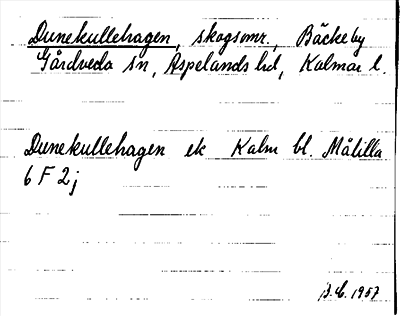 Dunekullehagen, skogsomr., Bäckeby
Gårdveda sn, Aspelands hd, Kalmar l.
Dunekullehagen ek Kalm bl. Målilla
6 F 2 j
1957